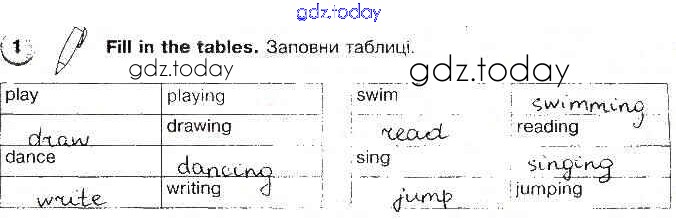 gdz.today
1 Fill in the tables. Заповни таблиці.
gdz.today gdz.today
play playing swim swimming
draw drawing read reading
dance dancing sing singing
write writing jump jumping